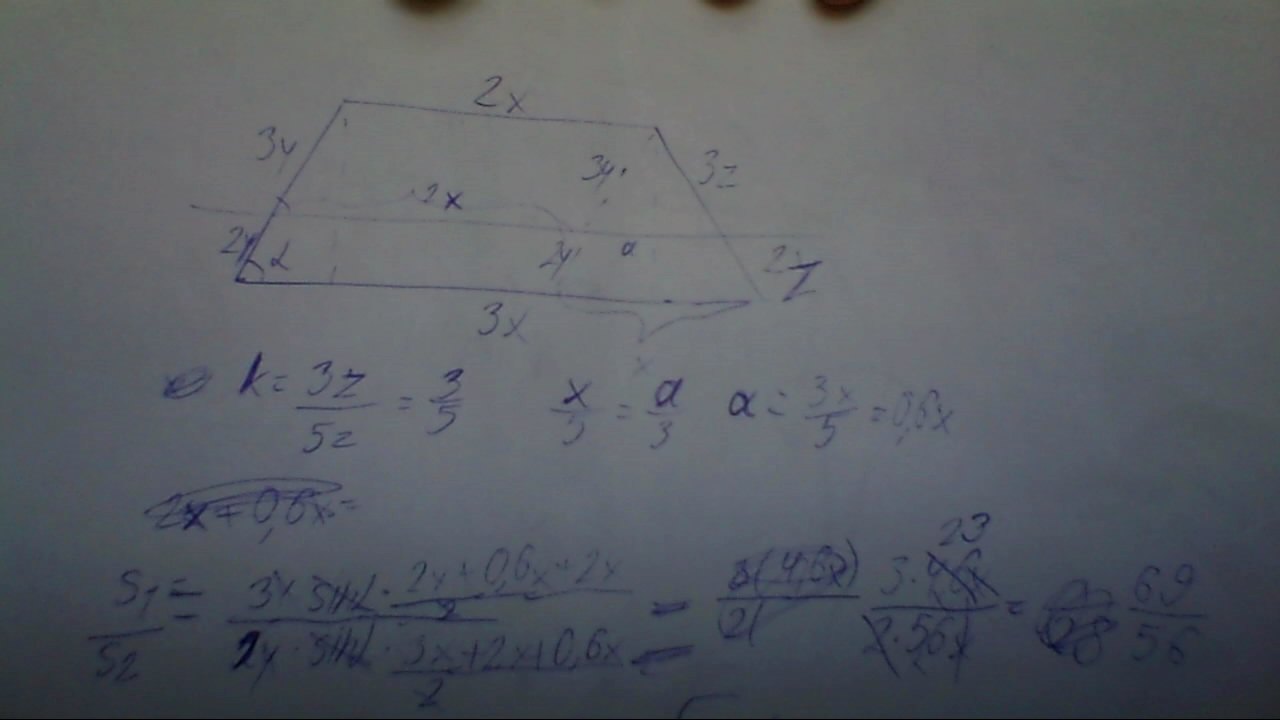 2x
3y
3y
3z
2x
2y
α
2y
a
2z
3x
x
k = 3z/5z = 3/5   x/5 = a/3   a = 3x/5 = 0,6x
2x + 0,6x =
S1/S2 = (3y · sinα · (2x + 0,6x + 2x)/2)/(2y · sinα · (3x + 2x + 0,6x)/2) = 3(4,6x)/2( 3·4,6x/2·5,6x 23 = 28 69/56